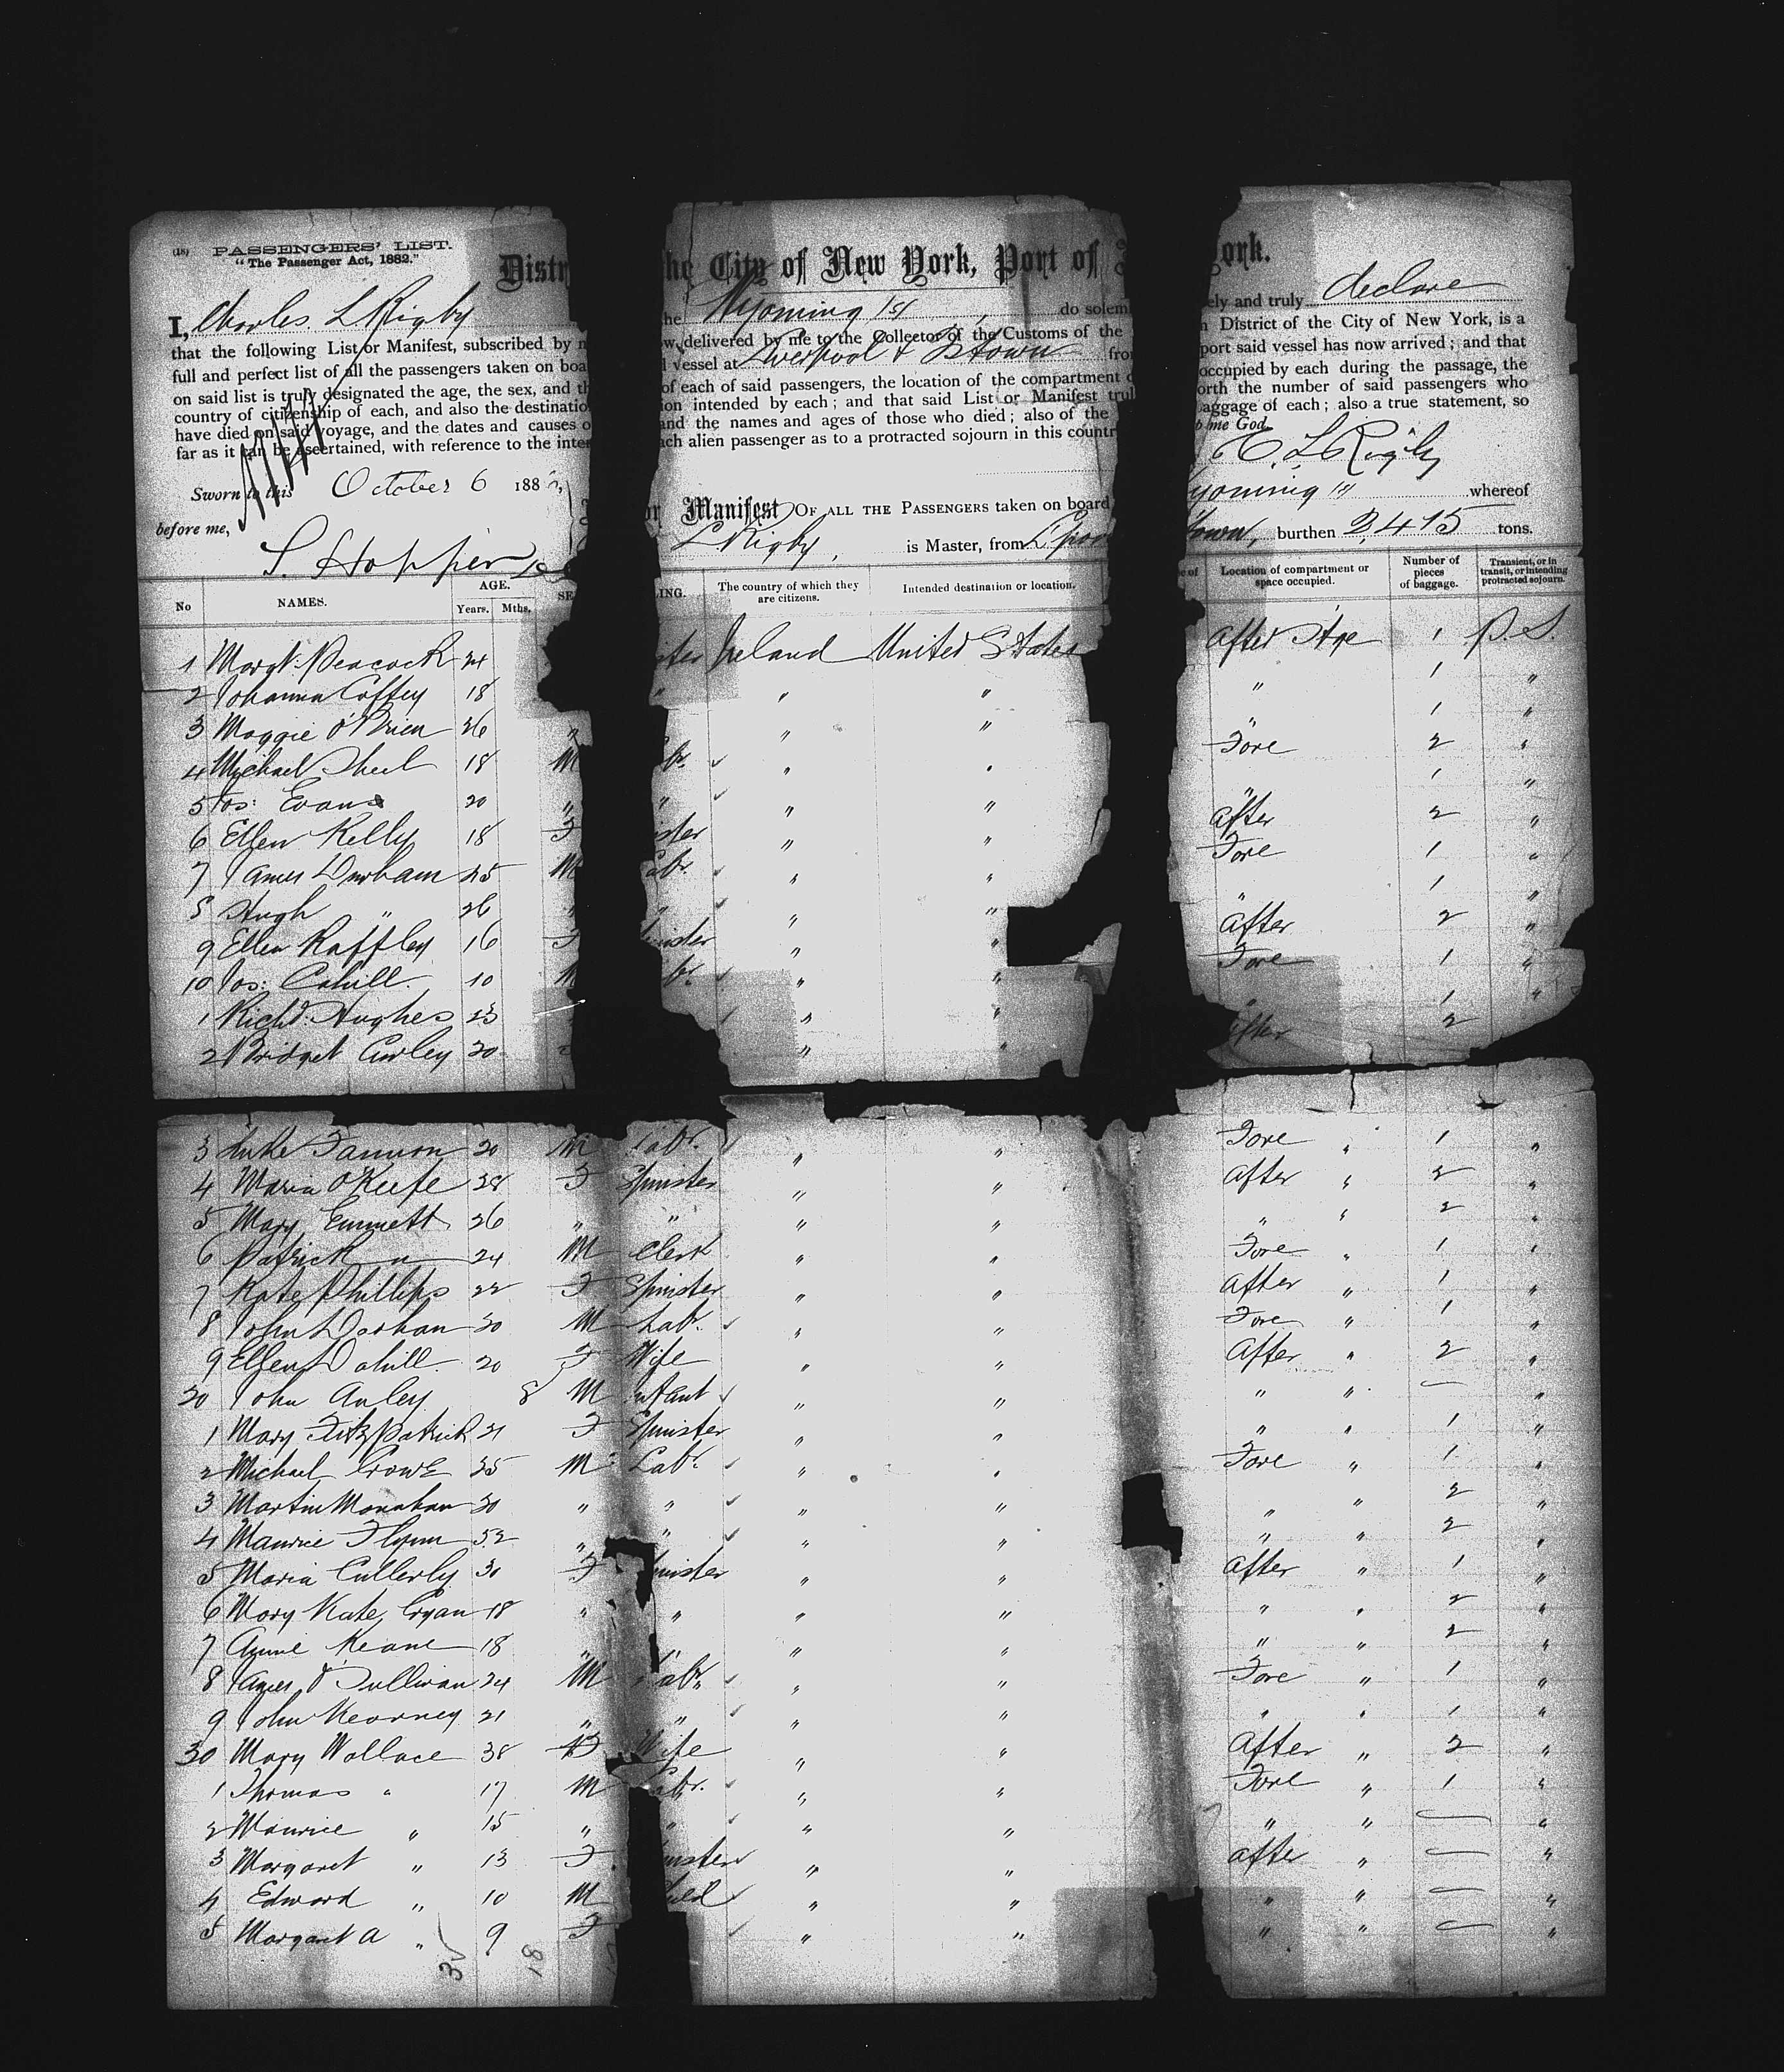 (18) PASSENGERS' LIST.
"The Passenger Act, 1882."
Distr he City of New York, Port of ork.
I, Charles L Rigby he Wyoming do solem ely and truly declare
that the following List or Manifest, subscribed by w, delivered by me to the Collector of the Customs of the District of the City of New York, is a
full and perfect list of all the passengers taken on boa vessel at Liverpool & Qtown fro port said vessel has now arrived; and that
on said list is truly designated the age, the sex, and th of each of said passengers, the location of the compartment occupied by each during the passage, the
country of citizenship of each, and also the destinatio ion intended by each; and that said List or Manifest trul orth the number of said passengers who
have died on said voyage, and the dates and causes o and the names and ages of those who died; also of the aggage of each; also a true statement, so
far as it can be ascertained, with reference to the inte ach alien passenger as to a protracted sojourn in this countr me God.
C. L. Rigby
Sworn to this October 6 188
or Manifest OF ALL THE PASSENGERS taken on board yoming whereof
before me,
S. Hopper L Rigby, is Master, from L'pool town, burthen 2,415 tons.
No NAMES. AGE. Years. Mths. SE ING. The country of which they are citizens. Intended destination or location. e of Location of compartment or space occupied. Number of pieces of baggage. Transient, or in transit, or intending protracted sojourn.
1 Margt. Peacock 24 ster Ireland United States After Stge 1 P. S.
2 Johanna Coffey 18 " " " " 1 "
3 Maggie O'Brien 26 " " " " 1 "
4 Michael 18 M br. " " Fore 2 "
5 Jos: Evans 20 " " " " " 1 "
6 Ellen Kelly 18 F ster " " After 2 "
7 James Durham 25 M abr. " " Fore 1 "
8 Hugh " 26 " " " " " 1 "
9 Ellen Raffley 16 F nister " " After 2 "
10 Jos: Cahill 10 M br. " " Fore 1 "
1 Richd: Hughes 23 " " " 1 "
2 Bridget Curley 20 " " After 2
3 Luke Fannon 20 M Labr. " " Fore " 1 "
4 Maria O'Keefe 28 F Spinster " " After " 2 "
5 Mary Emmett 26 " " " " " " 2 "
6 Patrick " 24 M Clerk " " Fore " 1 "
7 Kate Phillips 22 F Spinster " " After " 1 "
8 John Dorhan 30 M Labr. " " Fore " 1 "
9 Ellen Cahill 20 F Wife " " After " 2 "
20 John Anley 8 M Infant " " " " — "
1 Mary Fitzpatrick 21 F Spinster " " " " 1 "
2 Michael Crowe 35 M Labr. " " Fore " 1 "
3 Martin Monahan 30 " " " " " " 2 "
4 Maurice Flynn 52 " " " " " " 2 "
5 Maria Cullerly 30 F pinster " " After " 1 "
6 Mary Kate Cryan 18 " " " " " " 2 "
7 Annie Keane 18 " " " " " " 2 "
8 James O'Sullivan 24 M Labr. " " Fore " 1 "
9 John Kearney 21 " " " " " " 1 "
30 Mary Wallace 38 F Wife " " After " 2 "
1 Thomas " 17 M Labr. " " Fore " 1 "
2 Maurice " 15 " " " " " " — "
3 Margaret " 13 F inster " " After " — "
4 Edward " 10 M hild " " " " — "
5 Margaret A " 9 F " " " " — "
18